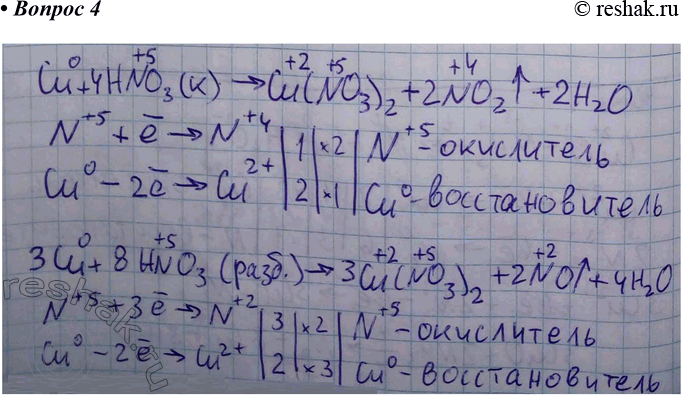 • Вопрос 4
© reshak.ru
Cu⁰ + 4HN⁺⁵O₃ (к) → Cu⁺²(N⁺⁵O₃)₂ + 2N⁺⁴O₂↑ + 2H₂O
N⁺⁵ + ē → N⁺⁴ | 1 | ×2 | N⁺⁵ - окислитель
Cu⁰ - 2ē → Cu²⁺ | 2 | ×1 | Cu⁰ - восстановитель
3Cu⁰ + 8HN⁺⁵O₃ (разб.) → 3Cu⁺²(N⁺⁵O₃)₂ + 2N⁺²O↑ + 4H₂O
N⁺⁵ + 3ē → N⁺² | 3 | ×2 | N⁺⁵ - окислитель
Cu⁰ - 2ē → Cu²⁺ | 2 | ×3 | Cu⁰ - восстановитель
reshak.ru